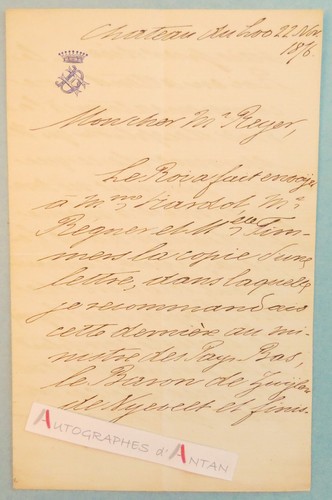 Chateau du Loo 22 Nov.
1876.
Mon cher Mr Reyer,
Le Roi a fait envoyer
à Mme Kardol Mr
Régner et Melle Tim-
mers la copie d'une
lettre, dans laquelle
je recommandais
cette dernière au mi-
nistre des Pays Bas,
le Baron de Zuylen
de Nyevelt et fémi-
AUTOGRAPHES d'ANTAN